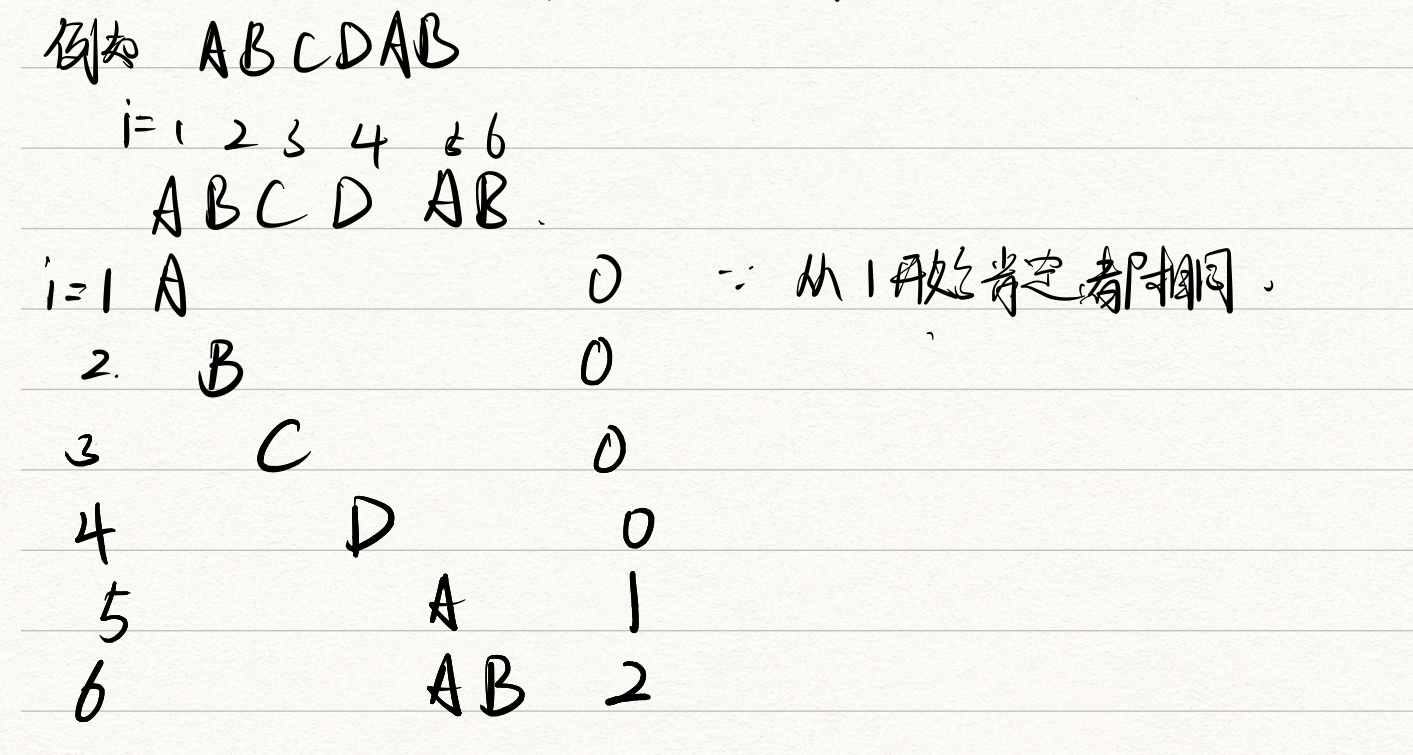 例如 ABCDAB
i= 1 2 3 4 5 6
A B C D A B .
i=1 A 0 ∵ 从1开始肯定都相同.
2. B 0
3 C 0
4 D 0
5 A 1
6 A B 2